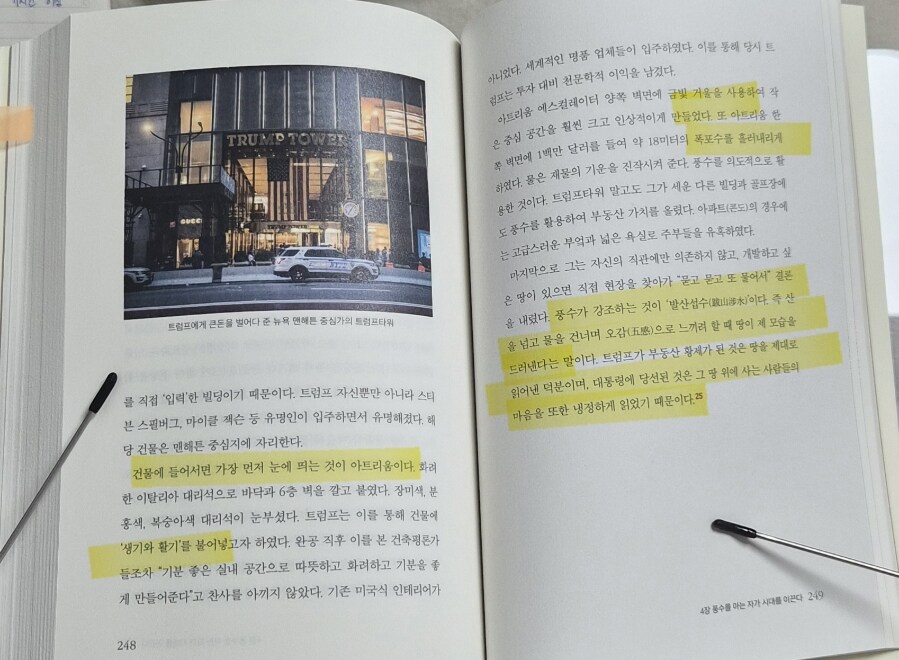 TRUMP TOWER
GUCCI
트럼프에게 큰돈을 벌어다 준 뉴욕 맨해튼 중심가의 트럼프타워
를 직접 '입력'한 빌딩이기 때문이다. 트럼프 자신뿐만 아니라 스티
븐 스필버그, 마이클 잭슨 등 유명인이 입주하면서 유명해졌다. 해
당 건물은 맨해튼 중심지에 자리한다.
건물에 들어서면 가장 먼저 눈에 띄는 것이 아트리움이다. 화려
한 이탈리아 대리석으로 바닥과 6층 벽을 깔고 붙였다. 장미색, 분
홍색, 복숭아색 대리석이 눈부셨다. 트럼프는 이를 통해 건물에
'생기와 활기'를 불어넣고자 하였다. 완공 직후 이를 본 건축평론가
들조차 "기분 좋은 실내 공간으로 따뜻하고 화려하고 기분을 좋
게 만들어준다"고 찬사를 아끼지 않았다. 기존 미국식 인테리어가
248
아니었다. 세계적인 명품 업체들이 입주하였다. 이를 통해 당시 트
럼프는 투자 대비 천문학적 이익을 남겼다.
아트리움 에스컬레이터 양쪽 벽면에 금빛 거울을 사용하여 작
은 중심 공간을 훨씬 크고 인상적이게 만들었다. 또 아트리움 한
쪽 벽면에 1백만 달러를 들여 약 18미터의 폭포수를 흘러내리게
하였다. 물은 재물의 기운을 진작시켜 준다. 풍수를 의도적으로 활
용한 것이다. 트럼프타워 말고도 그가 세운 다른 빌딩과 골프장에
도 풍수를 활용하여 부동산 가치를 올렸다. 아파트(콘도)의 경우에
는 고급스러운 부엌과 넓은 욕실로 주부들을 유혹하였다.
마지막으로 그는 자신의 직관에만 의존하지 않고, 개발하고 싶
은 땅이 있으면 직접 현장을 찾아가 "묻고 묻고 또 물어서" 결론
을 내렸다. 풍수가 강조하는 것이 '발산섭수(跋山涉水)'이다. 즉 산
을 넘고 물을 건너며 오감(五感)으로 느끼려 할 때 땅이 제 모습을
드러낸다는 말이다. 트럼프가 부동산 황제가 된 것은 땅을 제대로
읽어낸 덕분이며, 대통령에 당선된 것은 그 땅 위에 사는 사람들의
마음을 또한 냉정하게 읽었기 때문이다.25
4장 풍수를 아는 자가 시대를 이끈다 249